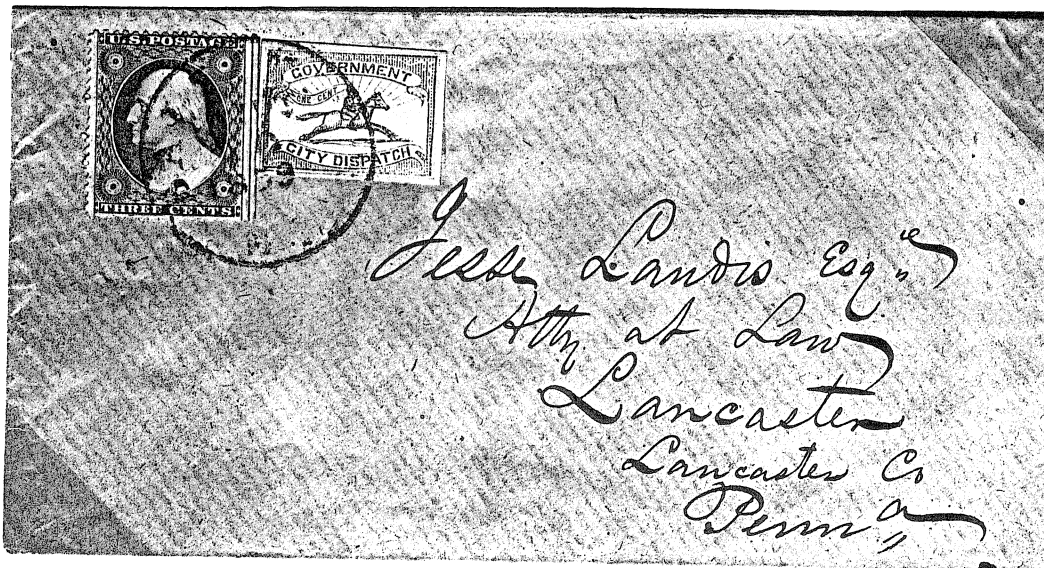 U.S. POSTAGE
THREE CENTS
GOVERNMENT
ONE CENT
CITY DISPATCH
Jesse Landis Esqre
Atty at Law
Lancaster
Lancaster Co
Penna